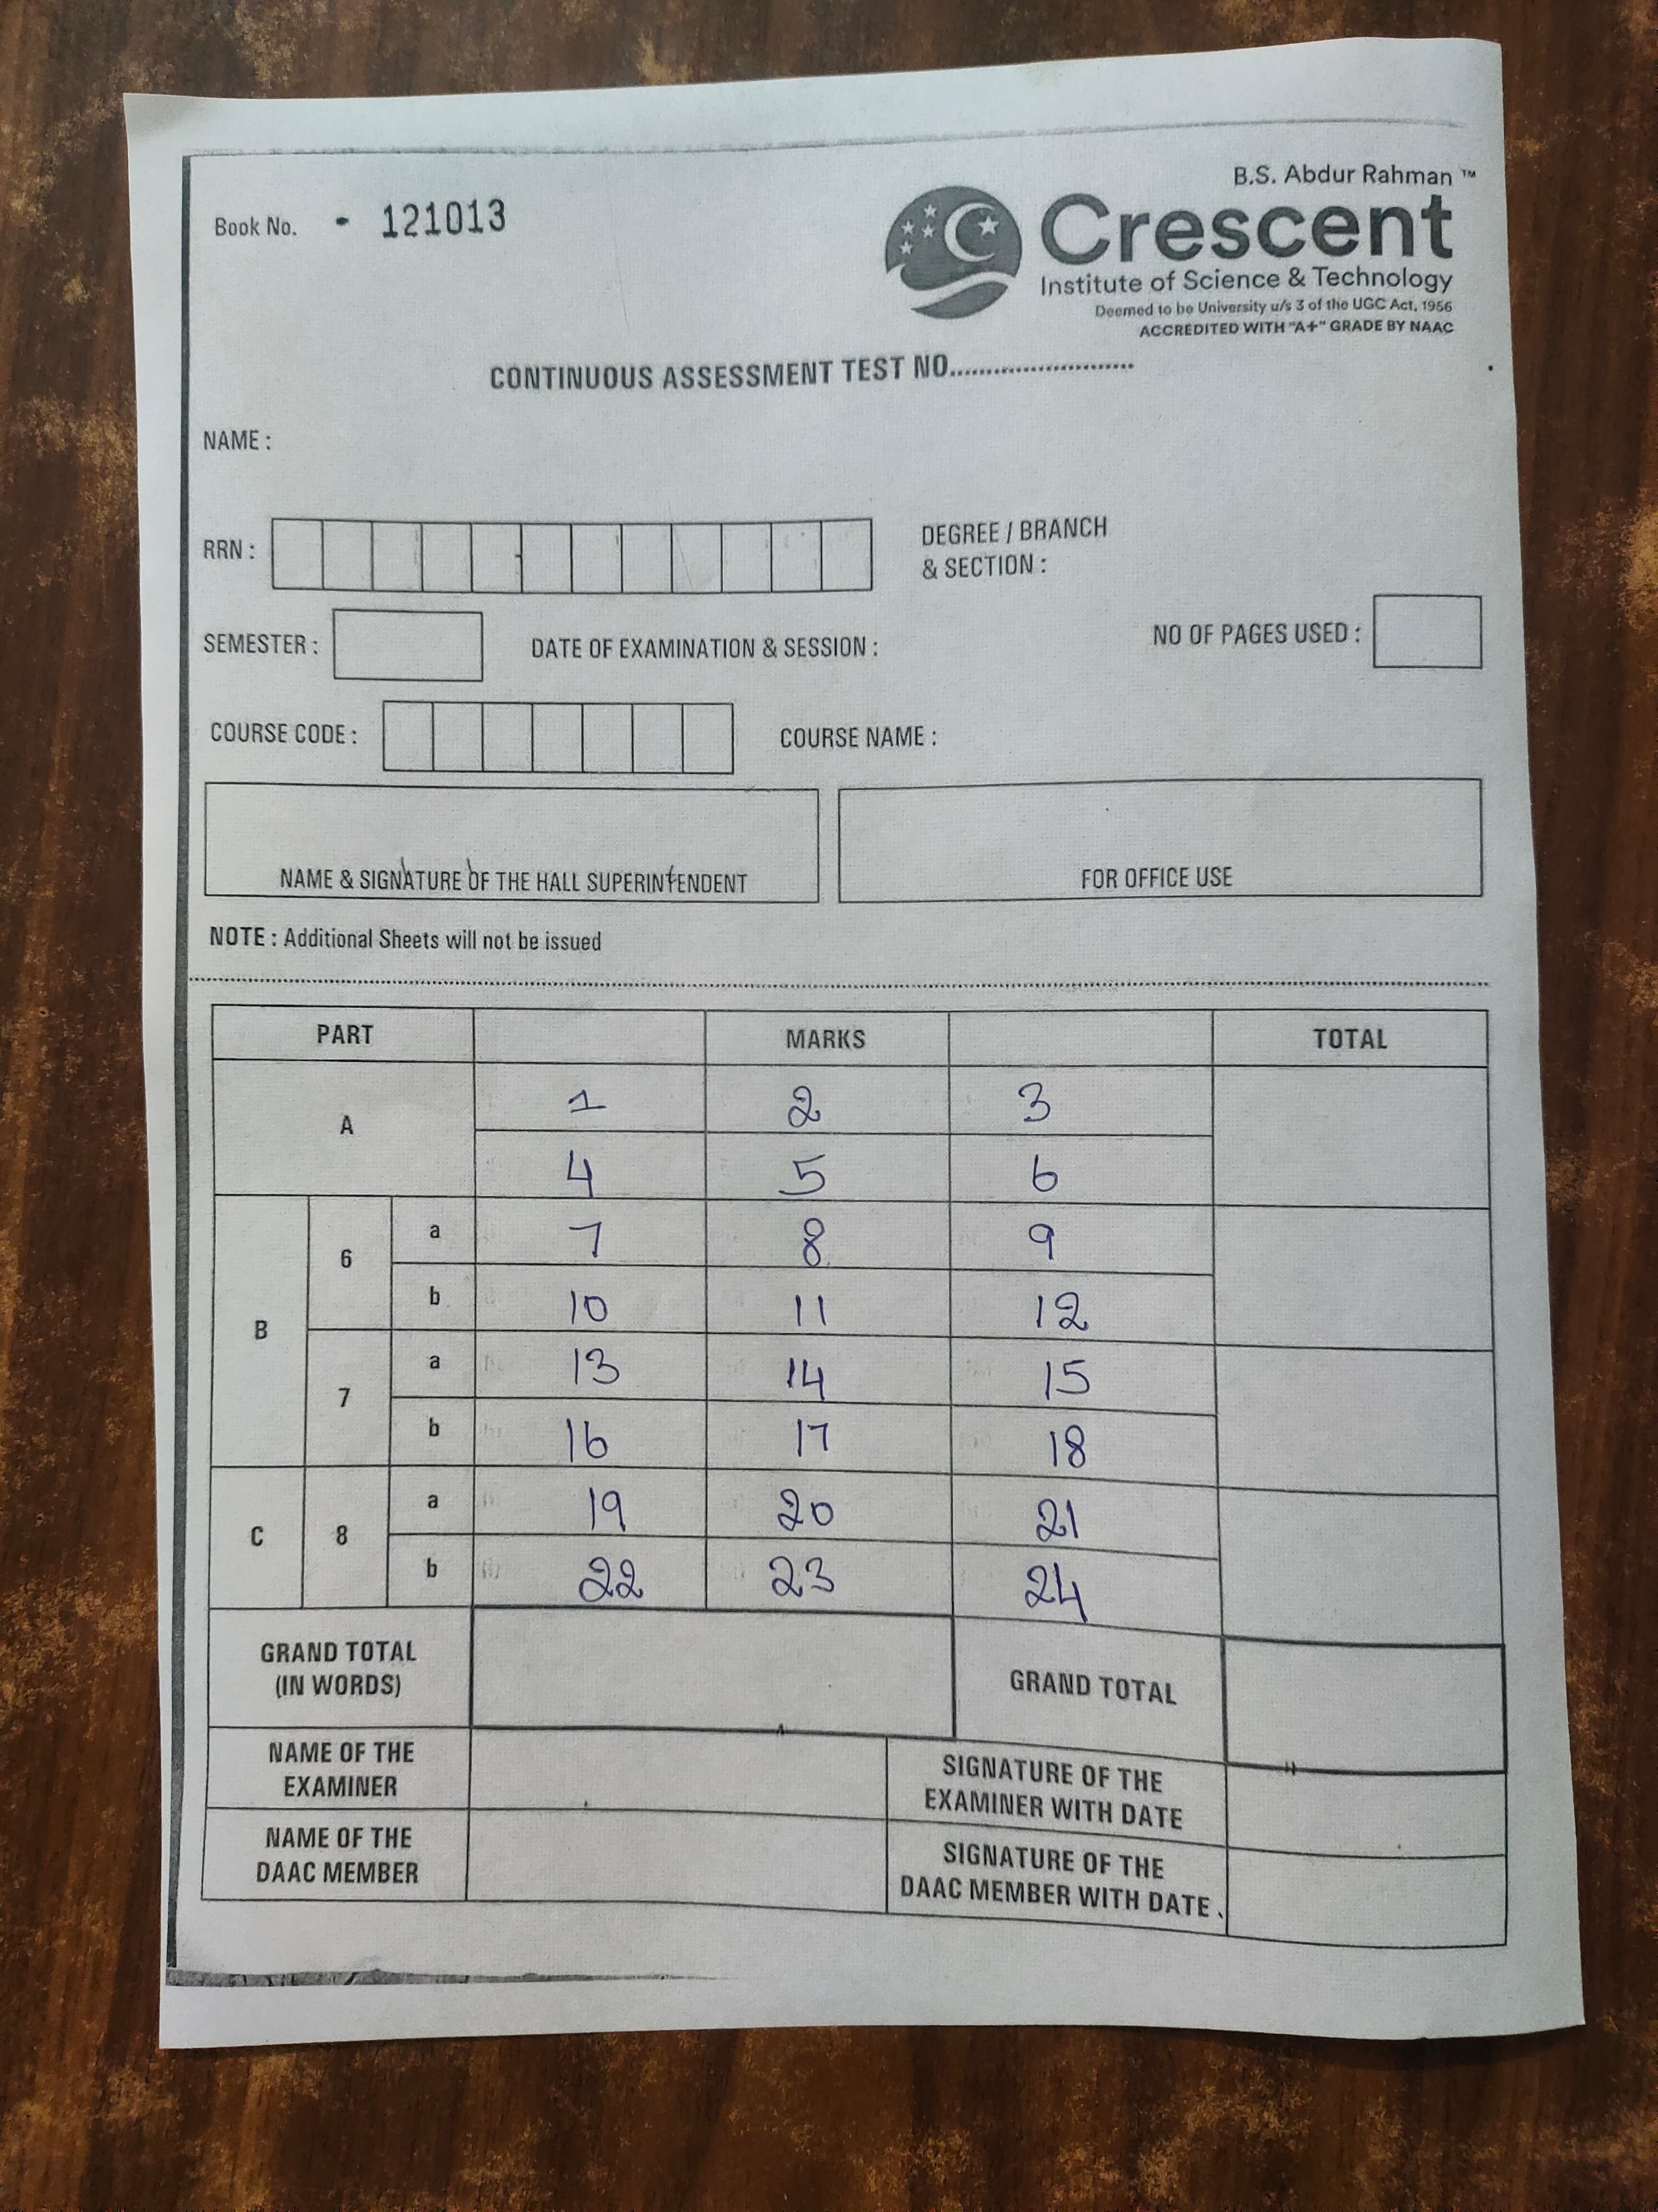 B.S. Abdur Rahman ™
Book No. - 121013
Crescent
Institute of Science & Technology
Deemed to be University u/s 3 of the UGC Act, 1956
ACCREDITED WITH "A+" GRADE BY NAAC
CONTINUOUS ASSESSMENT TEST NO..........................
NAME :
RRN :
DEGREE / BRANCH
& SECTION :
SEMESTER :
DATE OF EXAMINATION & SESSION :
NO OF PAGES USED :
COURSE CODE :
COURSE NAME :
NAME & SIGNATURE OF THE HALL SUPERINTENDENT
FOR OFFICE USE
NOTE : Additional Sheets will not be issued
PART MARKS TOTAL
A 1 2 3
4 5 6
B 6 a 7 8 9
b 10 11 12
7 a 13 14 15
b 16 17 18
C 8 a 19 20 21
b 22 23 24
GRAND TOTAL
(IN WORDS)
GRAND TOTAL
NAME OF THE
EXAMINER
SIGNATURE OF THE
EXAMINER WITH DATE
NAME OF THE
DAAC MEMBER
SIGNATURE OF THE
DAAC MEMBER WITH DATE